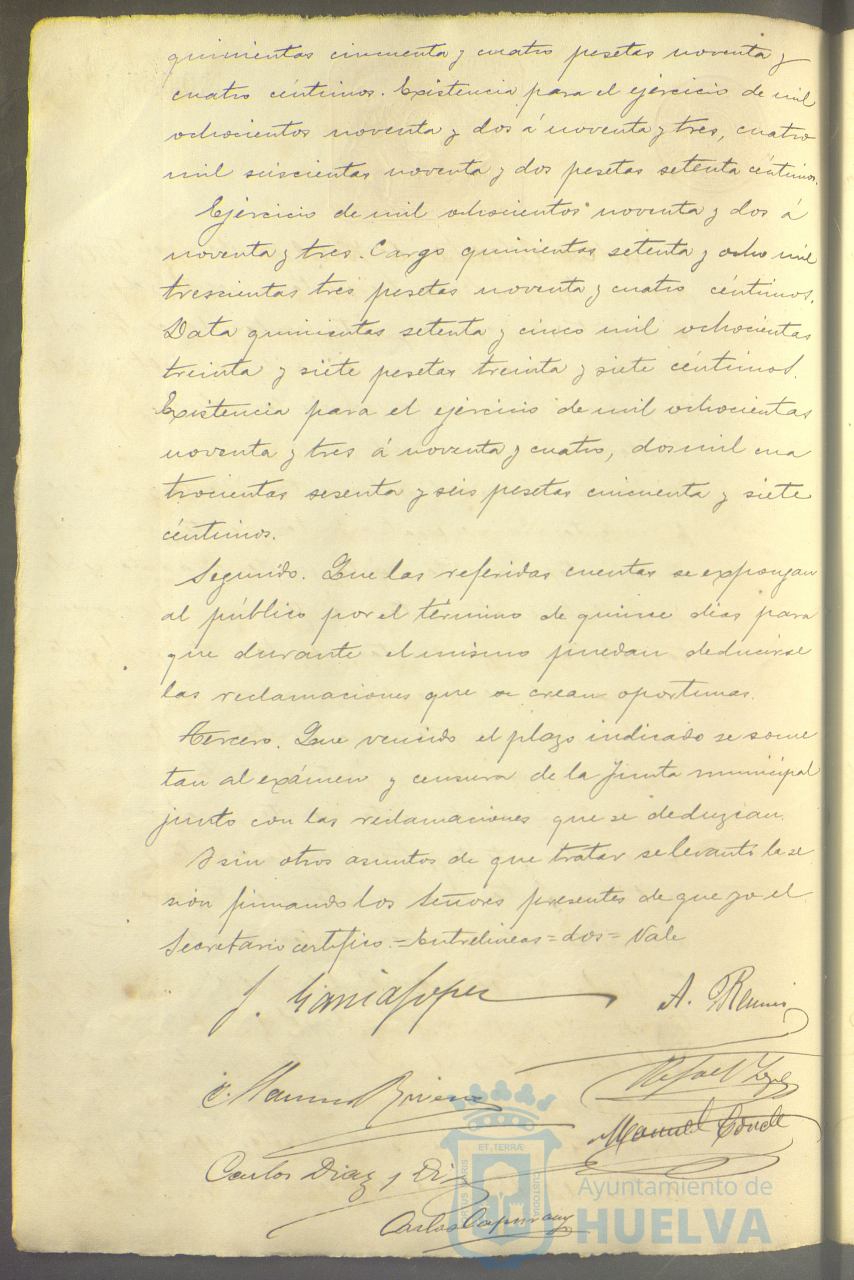 quinientas cincuenta y cuatro pesetas noventa y
cuatro céntimos. Existencia para el ejercicio de mil
ochocientos noventa y dos á noventa y tres, cuatro
mil seiscientas noventa y dos pesetas setenta céntimos.
Ejercicio de mil ochocientos noventa y dos á
noventa y tres. Cargo quinientas setenta y ocho mil
trescientas tres pesetas noventa y cuatro céntimos.
Data quinientas setenta y cinco mil ochocientas
treinta y siete pesetas treinta y siete céntimos.
Existencia para el ejercicio de mil ochocientas
noventa y tres á noventa y cuatro, dos mil cua
trocientas sesenta y seis pesetas cincuenta y siete
céntimos.
Segundo. Que las referidas cuentas se expongan
al público por el término de quince dias para
que durante el mismo puedan deducirse
las reclamaciones que se crean oportunas.
Tercero. Que vencido el plazo indicado se some
tan al exámen y censura de la Junta municipal
junto con las reclamaciones que se deduzcan.
Y sin otros asuntos de que tratar se levantó la se
sión firmando los Señores presentes de que yo el
Secretario certifico.=Entrelineas=dos=Vale
J. García López
A.
Rafael
Manuel Conde
Carlos Diaz y Diaz
Carlos
ET TERRÆ
PORTUS MARIS
CUSTODIA
Ayuntamiento de
HUELVA